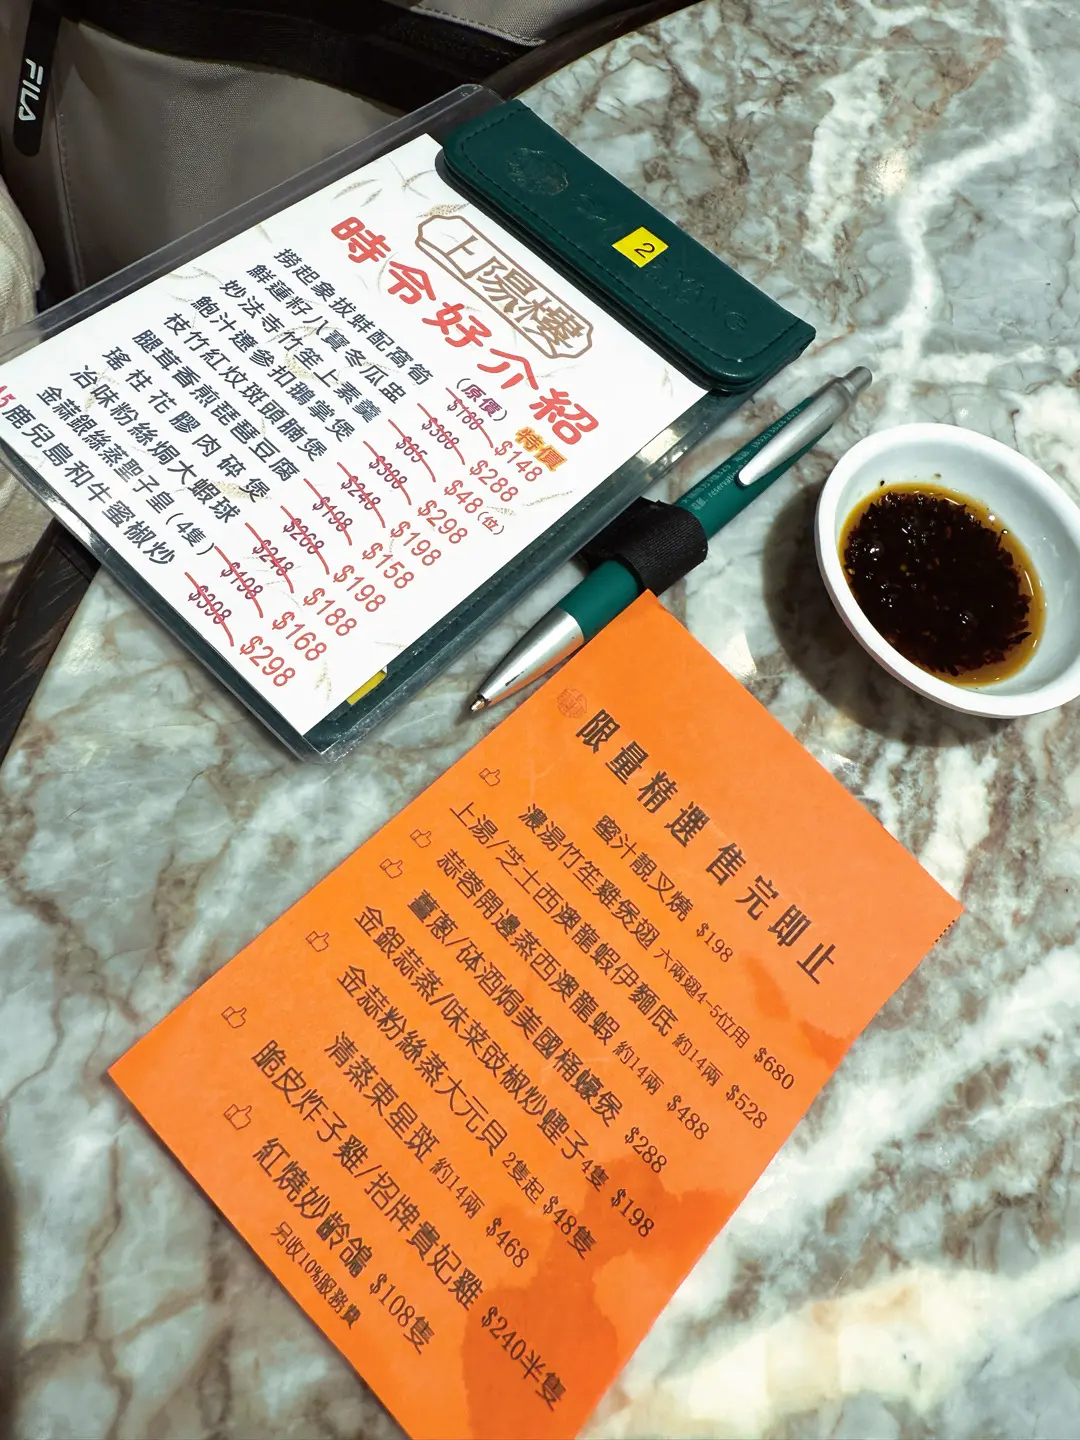 FILA
2
上陽樓
時令好介紹
(原價) 特價
撈起象拔蚌配窩筍 $188 $148
鮮蓮籽八寶冬瓜盅 $368 $288
妙法寺竹笙上素羹 $65 $48(位)
鮑汁遼參扣鵝掌煲 $388 $298
枝竹紅炆斑頭腩煲 $248 $198
腿茸香煎琵琶豆腐 $198 $158
瑤柱花膠肉碎煲 $268 $198
冶味粉絲焗大蝦球 $248 $188
金蒜銀絲蒸聖子皇(4隻) $198 $168
A5鹿兒島和牛蜜椒炒 $398 $298
限量精選售完即止
蜜汁靚叉燒 $198
濃湯竹笙雞煲翅 六兩翅4-5位用 $680
上湯/芝士西澳龍蝦伊麵底 約14兩 $528
蒜蓉開邊蒸西澳龍蝦 約14兩 $488
薑蔥/砵酒焗美國桶蠔煲 $288
金銀蒜蒸/味菜豉椒炒蟶子4隻 $198
金蒜粉絲蒸大元貝 2隻起 $48隻
清蒸東星斑 約14兩 $468
脆皮炸子雞/招牌貴妃雞 $240半隻
紅燒妙齡鴿 $108隻
另收10%服務費